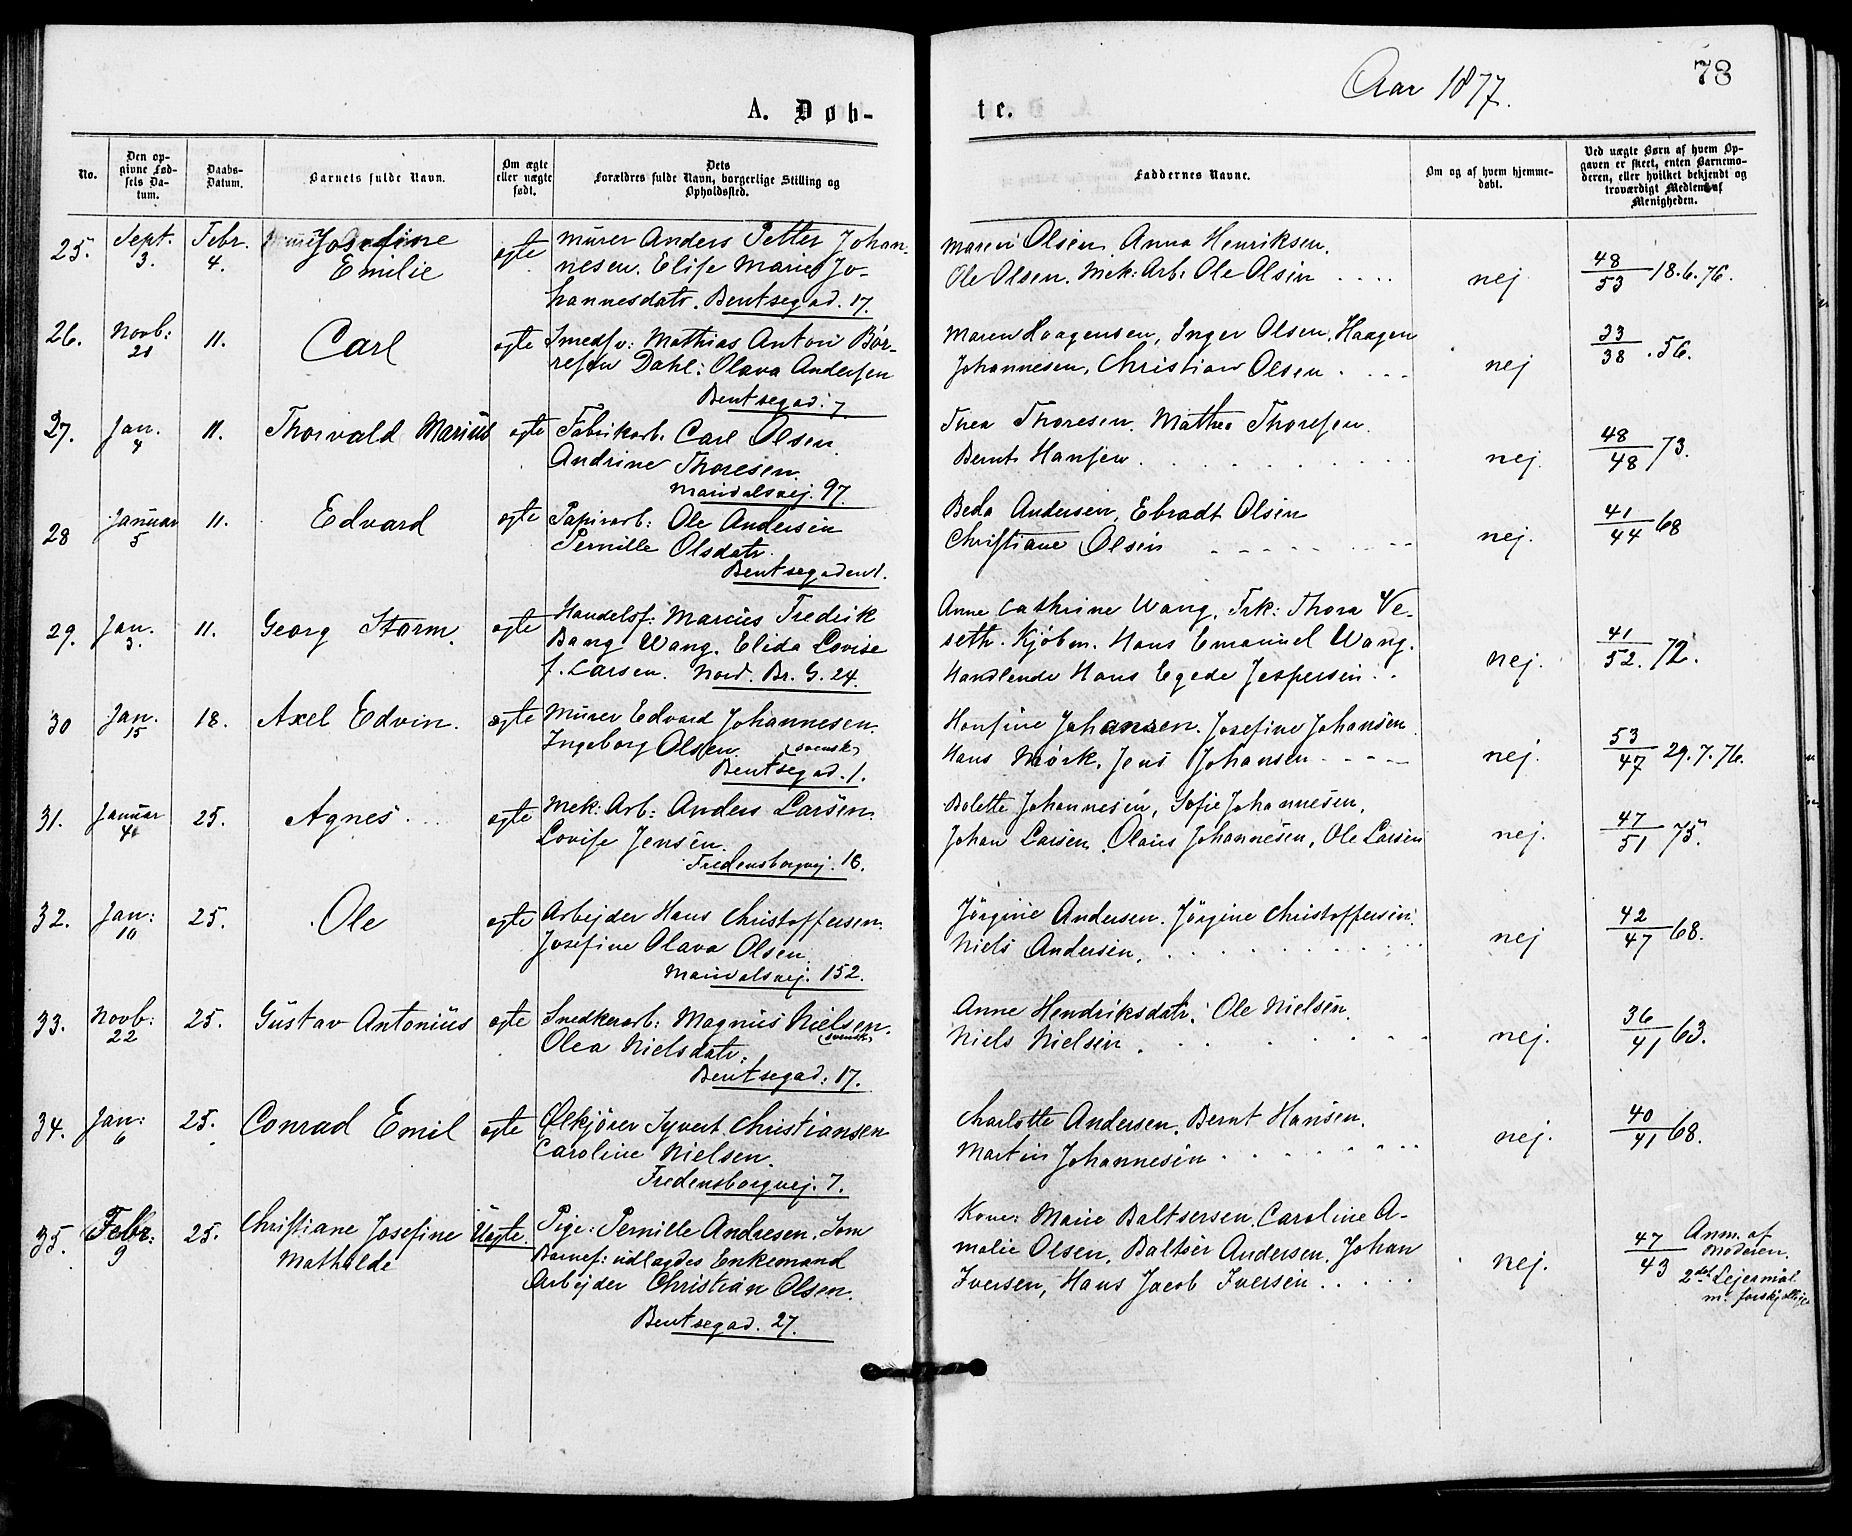 Aar 1877.
73
A. Døb-
te.
No.
Den op-
givne Fød-
sels Da-
tum.
Daabs-
Datum.
Barnets fulde Navn.
Om ægte
eller uægte
født.
Dets
Forældres fulde Navn, borgerlige Stilling og
Opholdssted.
Faddernes Navne.
Om og af hvem hjemme-
døbt.
Ved uægte Børn af hvem Op-
gaven er skeet, enten Barnemo-
deren, eller hvilket bekjendt og
troværdigt Medlem af
Menigheden.
25. Sept. 3. Febr. 4. Josefine
Emilie
ægte
Murer Anders Petter Johan-
nesen. Elise Marie Jo-
hannesdatr. Bentsegad. 17.
Maren Olsen, Anna Henriksen.
Ole Olsen. Mek: Arb: Ole Olsen
nej
48/53 18.6.76.
26. Novb: 21 11. Carl ægte
Smedsv: Mathias Anton Bør-
resen Dahl: Olava Andersen
Bentsegad: 7
Maren Haagensen, Inger Olsen, Haagen
Johannesen, Christian Olsen
nej
33/38 . 56.
27. Jan. 4 11. Thorvald Marius ægte
Fabrikarb. Carl Olsen.
Andrine Thoresen.
Maridalsvej. 97.
Thea Thoresen. Mathea Thoresen.
Bernt Hansen.
nej.
48/48 73.
28 Januar 5 11. Edvard ægte
Papirarb: Ole Andersen
Pernille Olsdatr.
Bentsegaden 1.
Beda Andersen, Ebradt Olsen
Christiane Olsen
nej.
41/44 68
29. Jan. 3. 11. Georg Storm. ægte
Handelsf: Marcus Fredrik
Bang Wang. Elida Lovise
f. Larsen. Nord. Br. G. 24.
Anne Cathrine Wang, Frk: Thora Ve-
seth. Kjøbm. Hans Emanuel Wang.
Handlende Hans Egede Jespersen.
nej.
41/52. 72.
30 Jan. 15 18. Axel Edvin. ægte
Murer Edvard Johannesen.
Ingeborg Olsen. (svensk)
Bentsegad. 1.
Hansine Johansen. Josefine Johansen.
Hans Mørk. Jens Johansen
nej.
53/47 29.7.76.
31. Januar 4 25. Agnes ægte
Mek: Arb: Anders Larsen.
Lovise Jensen.
Fredensborgvej. 18.
Bolette Johannesen, Sofie Johannesen.
Johan Larsen. Olaus Johannesen, Ole Larsen
nej.
47/51 75.
32. Jan: 10 25. Ole ægte
Arbejder Hans Christoffersen.
Josefine Olava Olsen.
Maridalsvej. 152.
Jørgine Andersen. Jørgine Christoffersen.
Niels Andersen.
nej
42/47 68.
33. Novb: 22 25. Gustav Antonius ægte
Snedkerarb: Magnus Nielsen.
(svensk)
Olea Nielsdatr.
Bentsegad: 17.
Anne Hendriksdatr. Ole Nielsen.
Niels Nielsen.
nej.
36/41 63.
34. Jan: 6 25. Conrad Emil ægte
Ølkjører Syvert Christiansen
Caroline Nielsen.
Fredensborgvej. 7.
Charlotte Andersen. Bernt Hansen.
Martin Johannesen
nej.
40/41 68.
35. Febr: 9 25. Christiane Josefine
Mathilde
Uægte.
Pige: Pernille Andresen. Som
Barnef: udlagdes Enkemand
Arbejder Christian Olsen.
Bentsegad. 27.
Kone: Marie Baltsersen. Caroline A-
malie Olsen, Baltser Andersen. Johan
Iversen, Hans Jacob Iversen
nej.
47/43 Anm. af
Moderen.
2det Lejermål
m. forskjellige